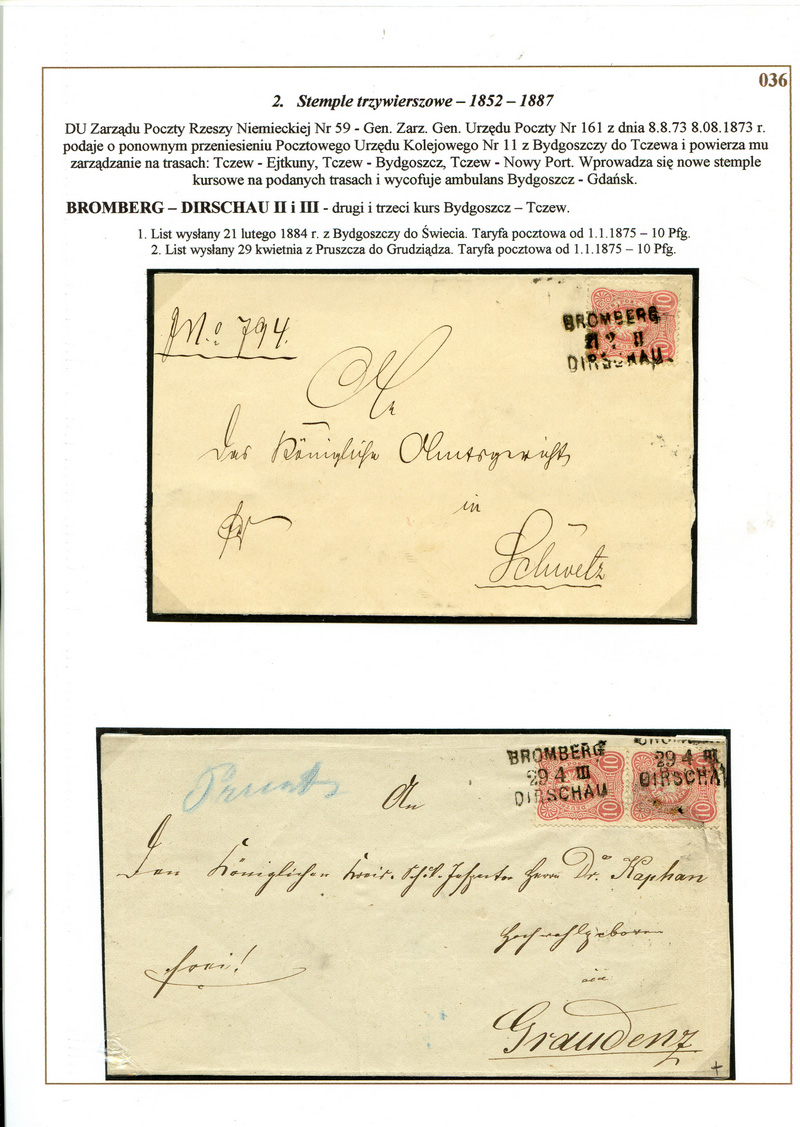 036
2. Stemple trzywierszowe – 1852 – 1887
DU Zarządu Poczty Rzeszy Niemieckiej Nr 59 - Gen. Zarz. Gen. Urzędu Poczty Nr 161 z dnia 8.8.73 8.08.1873 r.
podaje o ponownym przeniesieniu Pocztowego Urzędu Kolejowego Nr 11 z Bydgoszczy do Tczewa i powierza mu
zarządzanie na trasach: Tczew - Ejtkuny, Tczew - Bydgoszcz, Tczew - Nowy Port. Wprowadza się nowe stemple
kursowe na podanych trasach i wycofuje ambulans Bydgoszcz - Gdańsk.
BROMBERG – DIRSCHAU II i III - drugi i trzeci kurs Bydgoszcz – Tczew.
1. List wysłany 21 lutego 1884 r. z Bydgoszczy do Świecia. Taryfa pocztowa od 1.1.1875 – 10 Pfg.
2. List wysłany 29 kwietnia z Pruszcza do Grudziądza. Taryfa pocztowa od 1.1.1875 – 10 Pfg.
10
BROMBERG
21 2 II
DIRSCHAU
No 794.
An
Das Königliche Amtsgericht
in
Schwetz
10 10
BROMBERG
29 4 III
DIRSCHAU
29 4 III
DIRSCHA
An
Den Königlichen Kreis-Schul-Inspector Herrn Dr. Kaphan
Hochwohlgeboren
frei!
in
Graudenz